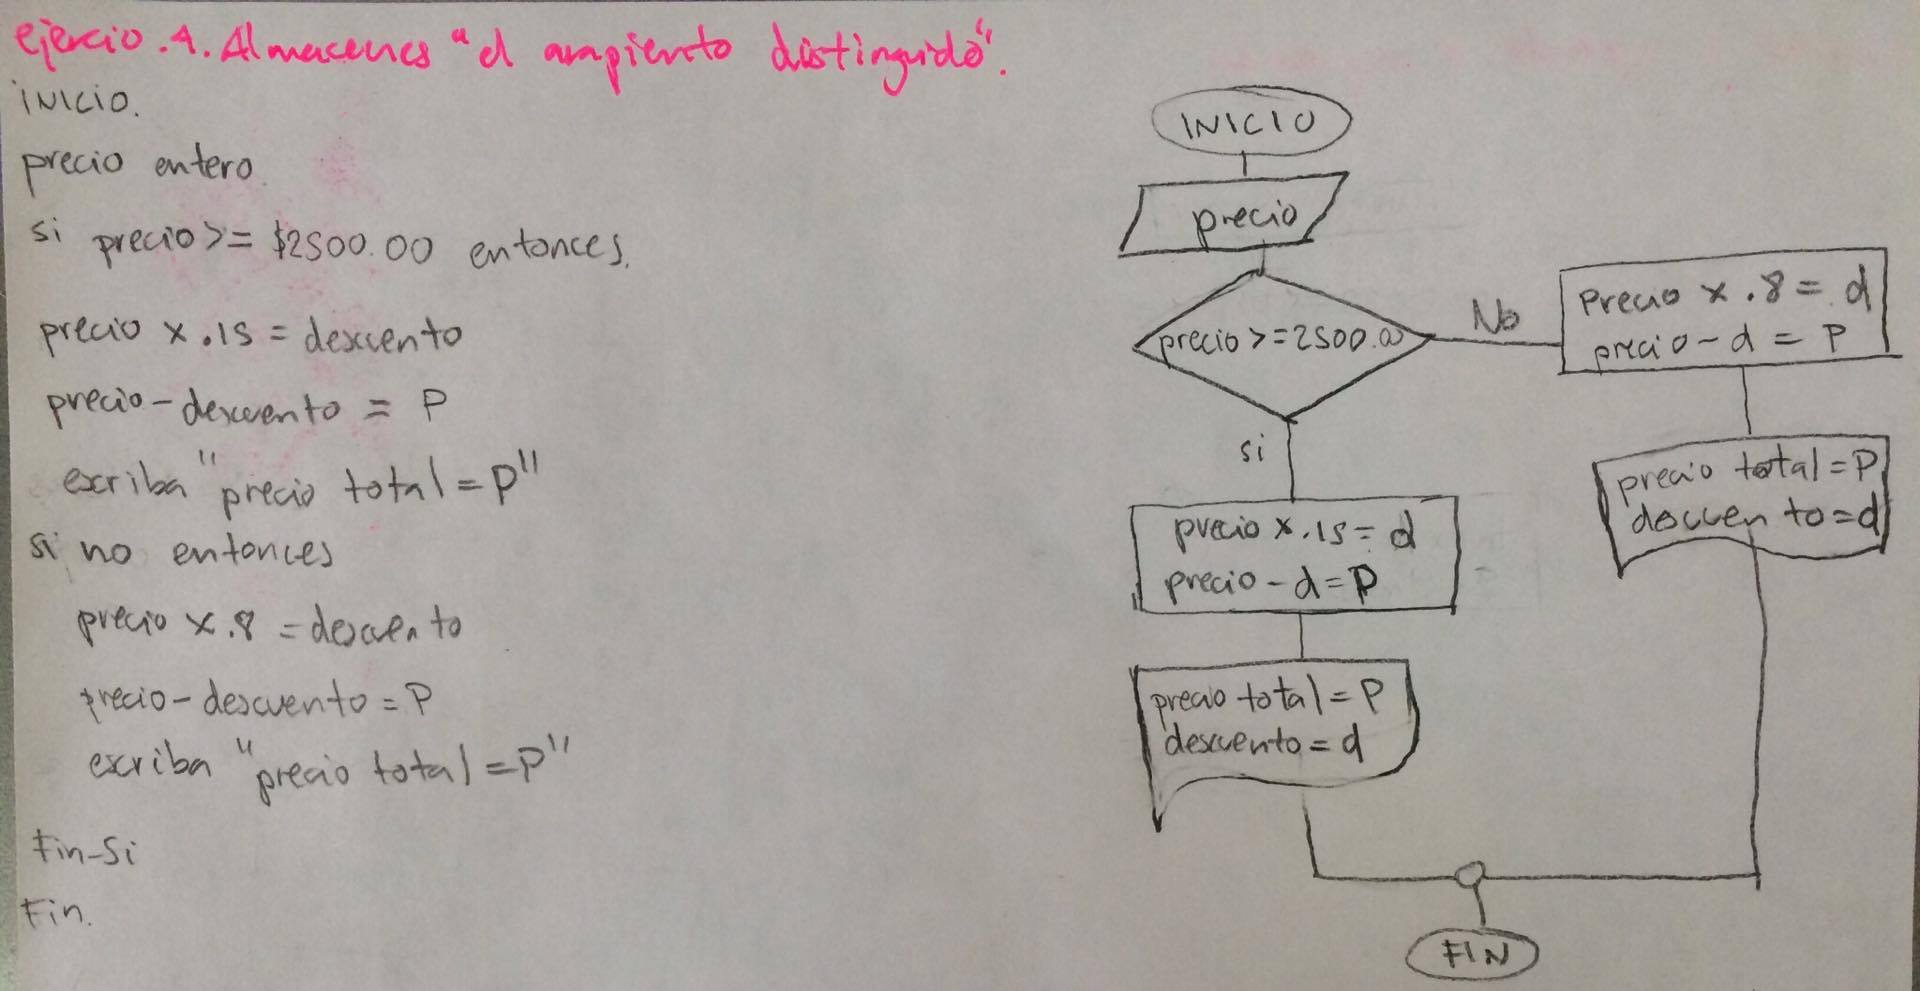 ejercio.4. Almacenes "el arapiento distinguido".
INICIO.
precio entero
si precio >= $2500.00 entonces.
precio x .15 = descuento
precio - descuento = P
escriba "precio total = P"
si no entonces
precio x .8 = descuento
precio - descuento = P
escriba "precio total = P"
Fin-Si
Fin.
INICIO
precio
precio >= 2500.00
No
precio x .8 = d
precio - d = P
precio total = P
descuento = d
si
precio x .15 = d
precio - d = P
precio total = P
descuento = d
FIN